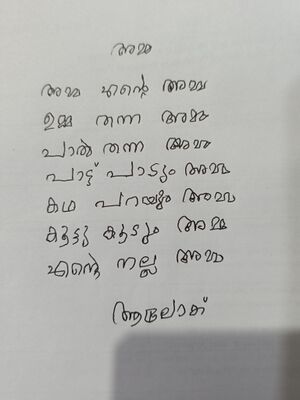 അമ്മ
അമ്മ എന്റെ അമ്മ
ഉമ്മ തന്ന അമ്മ
പാൽ തന്ന അമ്മ
പാട്ട് പാടും അമ്മ
കഥ പറയും അമ്മ
കൂട്ടു കൂടും അമ്മ
എന്റെ നല്ല അമ്മ